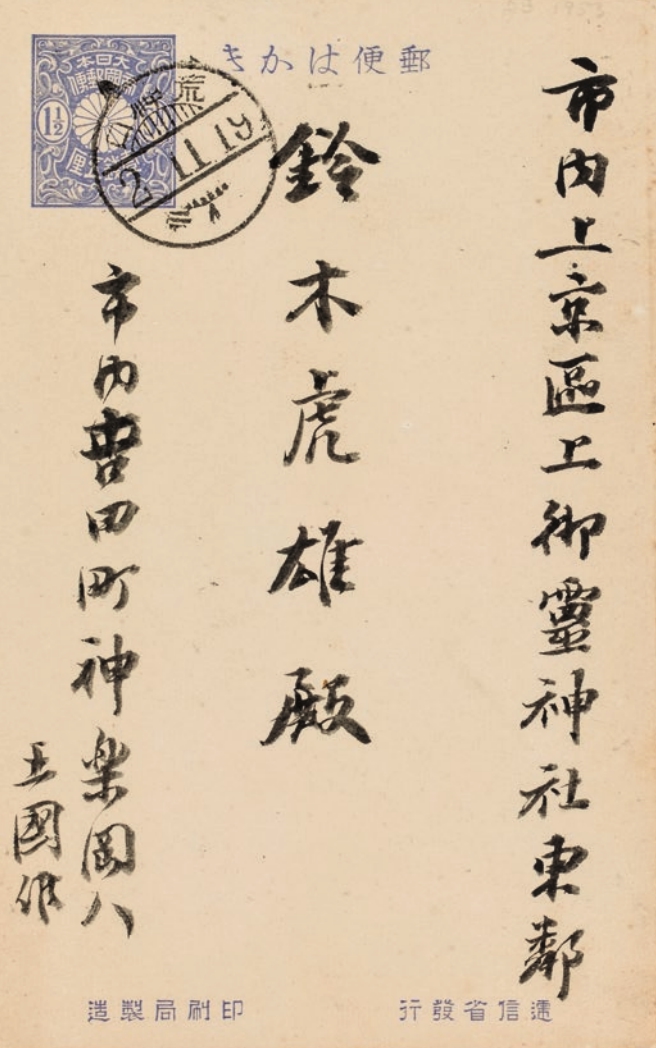 郵便はかき
市内上京區上御靈神社東鄰
鈴木虎雄殿
市内吉田町神楽岡八
王國維
大日本
帝國郵便
1½
壹錢五厘
2.11.19
逓信省發行
印刷局製造